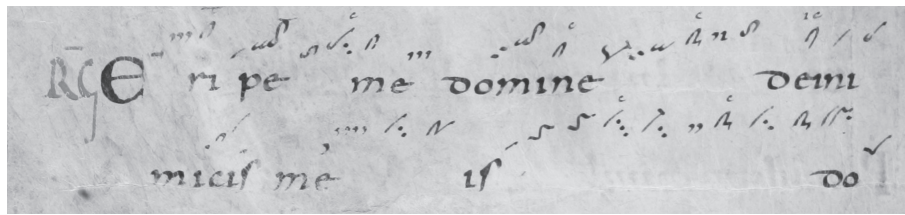 RG E ri pe me domine deini
micis me is do